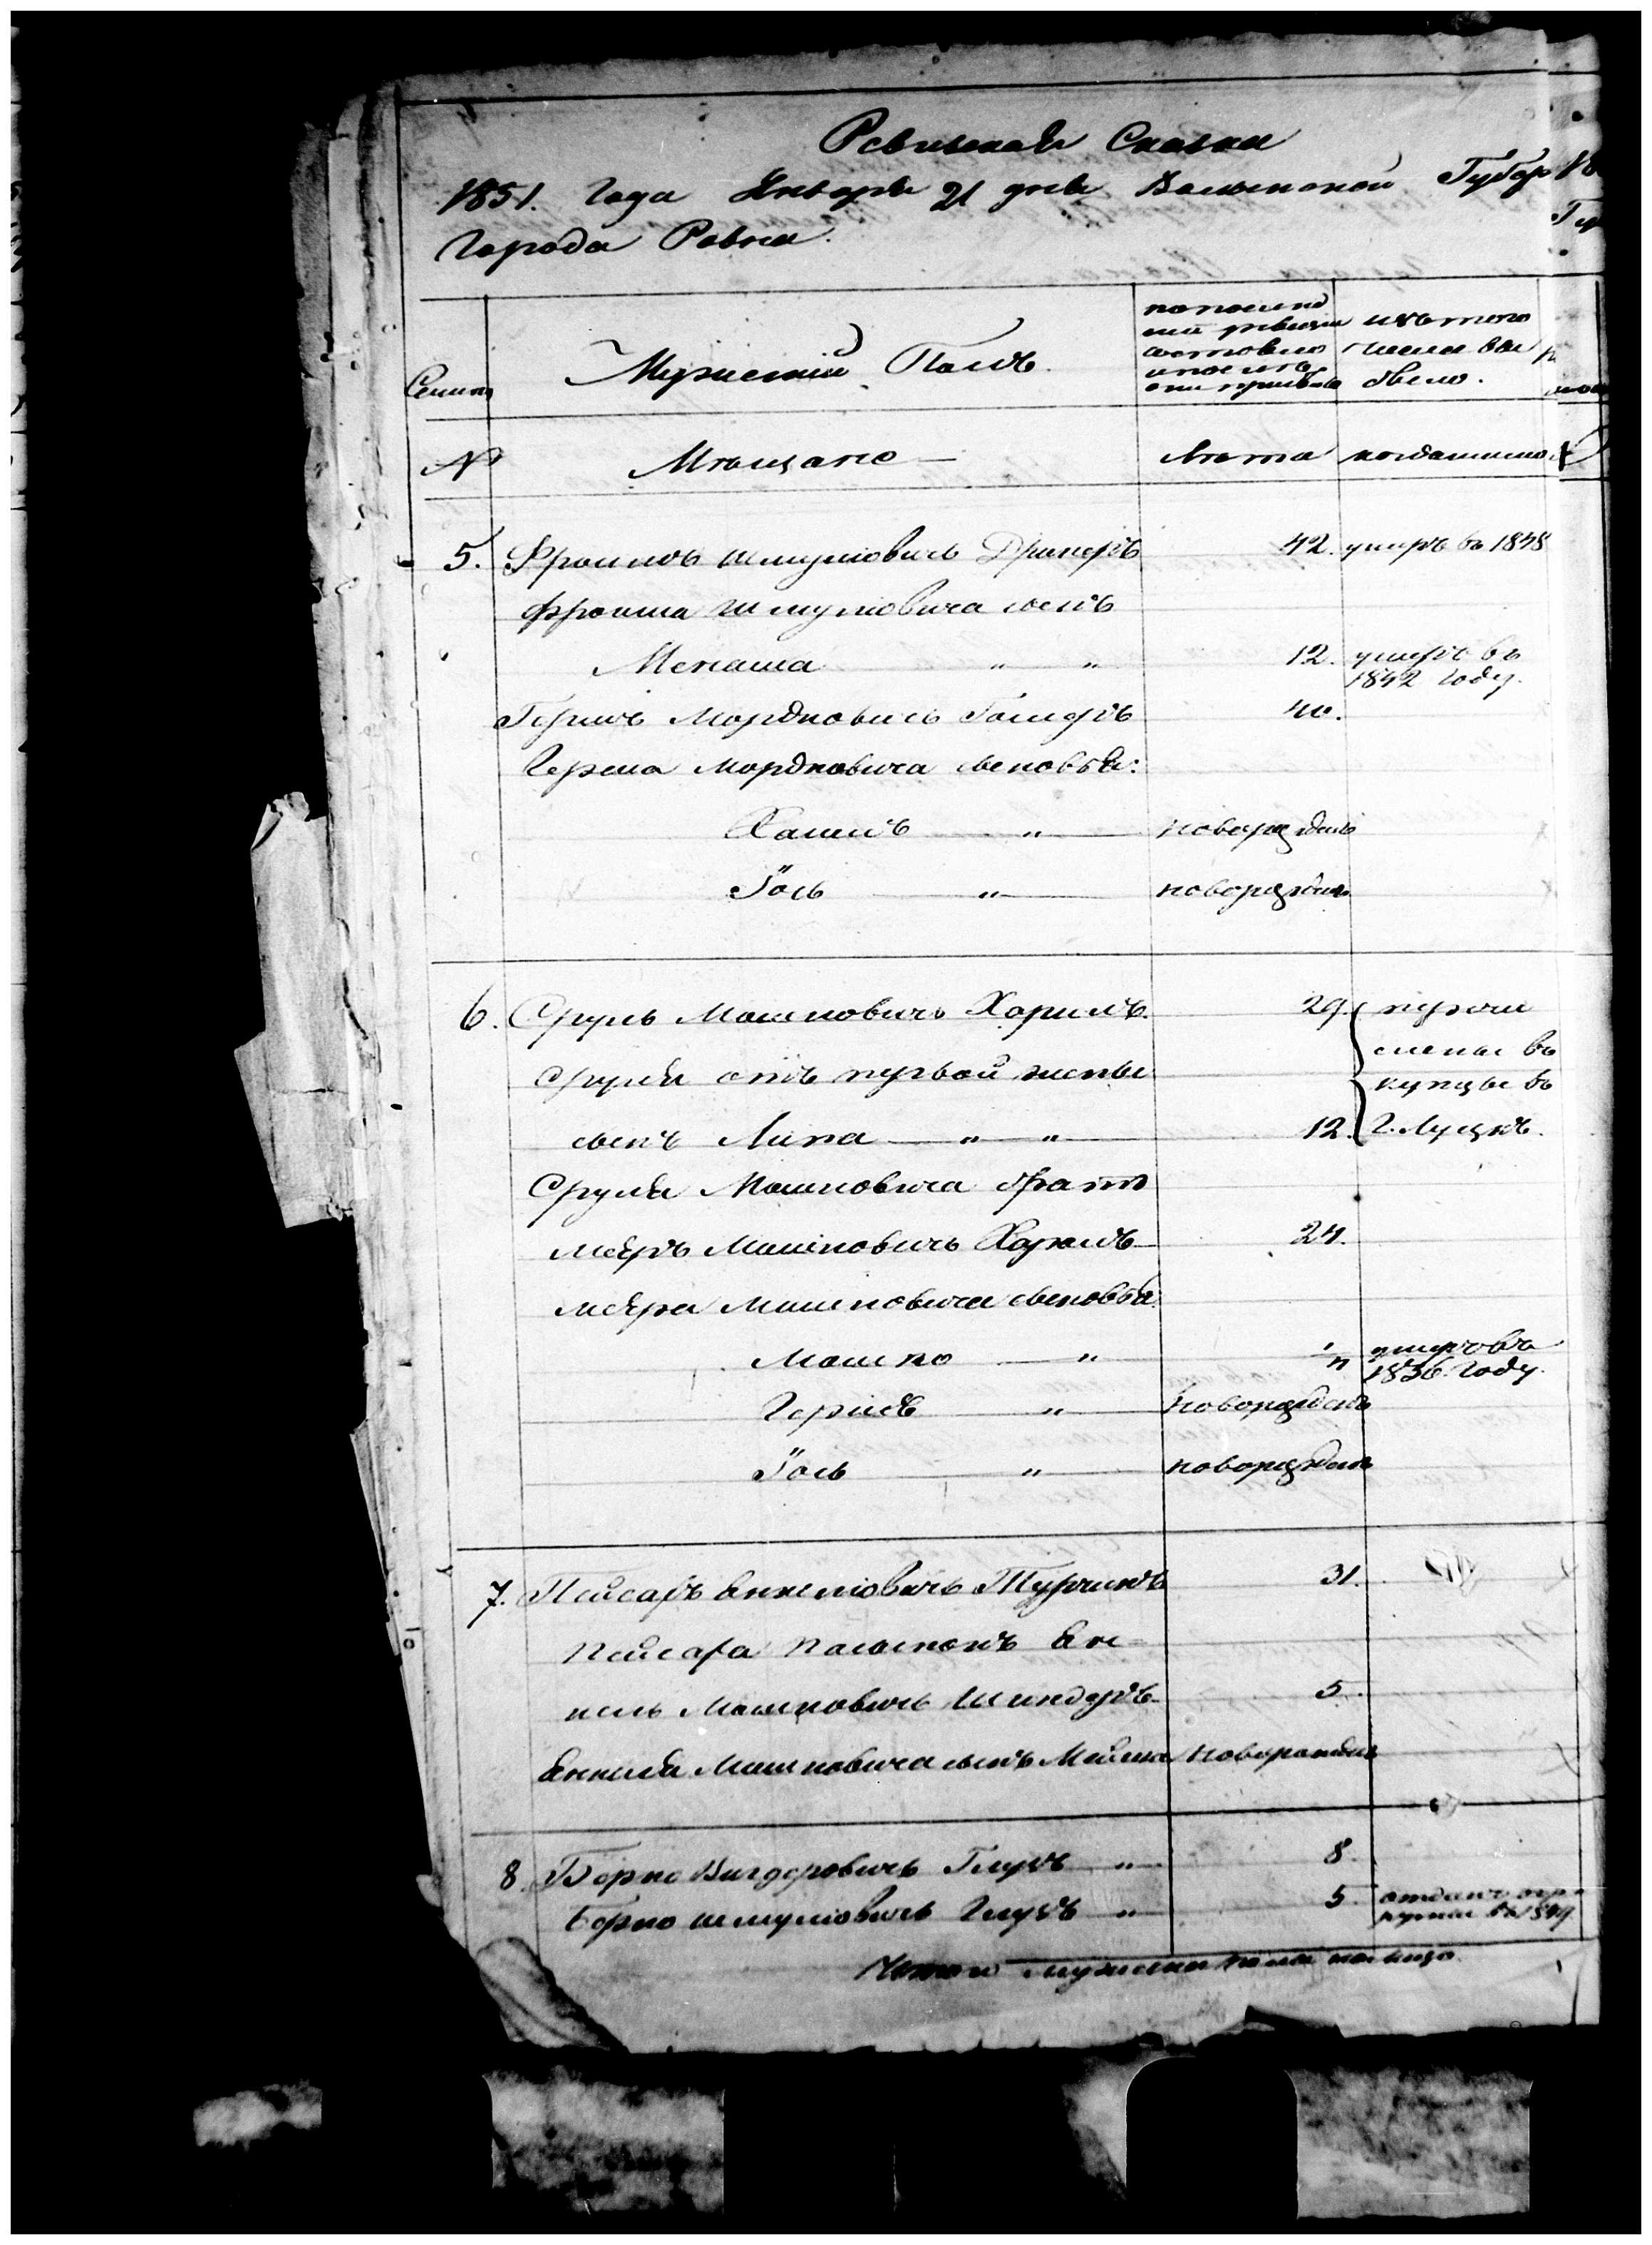 Ревизская Сказка
1851. Года Января 21 дня Волынской Губер
Города Ровна.
Семьи
Мужеский Полъ.
по последней ревизии состояло и после оной прибыло
изъ того числа выбыло.
№
Мѣщане
лѣта
когда именно
5. Фроимъ Шмулiовичъ Дрикеръ 42. умеръ въ 1848
Фроима Шмулiовича сынъ
Менаша " " 12. умеръ въ
1842 году.
Гершъ Мордковичъ 40.
Герша Мордковича сыновья:
Хаимъ " новорожден
Iось " новорожден
6. Сруль Мошковичъ Хоримъ. 29. перечи
слены въ
Сруля отъ первой жены
купцы въ
сынъ Липа " " 12. г. Луцкъ.
Сруля Мошковича братъ
Мееръ Мошковичъ Хоримъ 24.
Меера Мошковича сыновья:
Мошко " " умеръ въ
1836. году.
Гершъ " новорожденъ
Iось " новорожден
7. Пейсахъ Янкелiовичъ Турчинъ 31.
Пейсаха Ян-
кель Мошковичъ Шиндеръ 5.
Янкеля Мошковича сынъ новорожден
8. Берко Вигдоровичъ Глузъ " 8.
Берко Шмулiовичъ Глузъ " 5. отданъ въ ре-
круты въ 1849
Итого мужеска пола на лицо